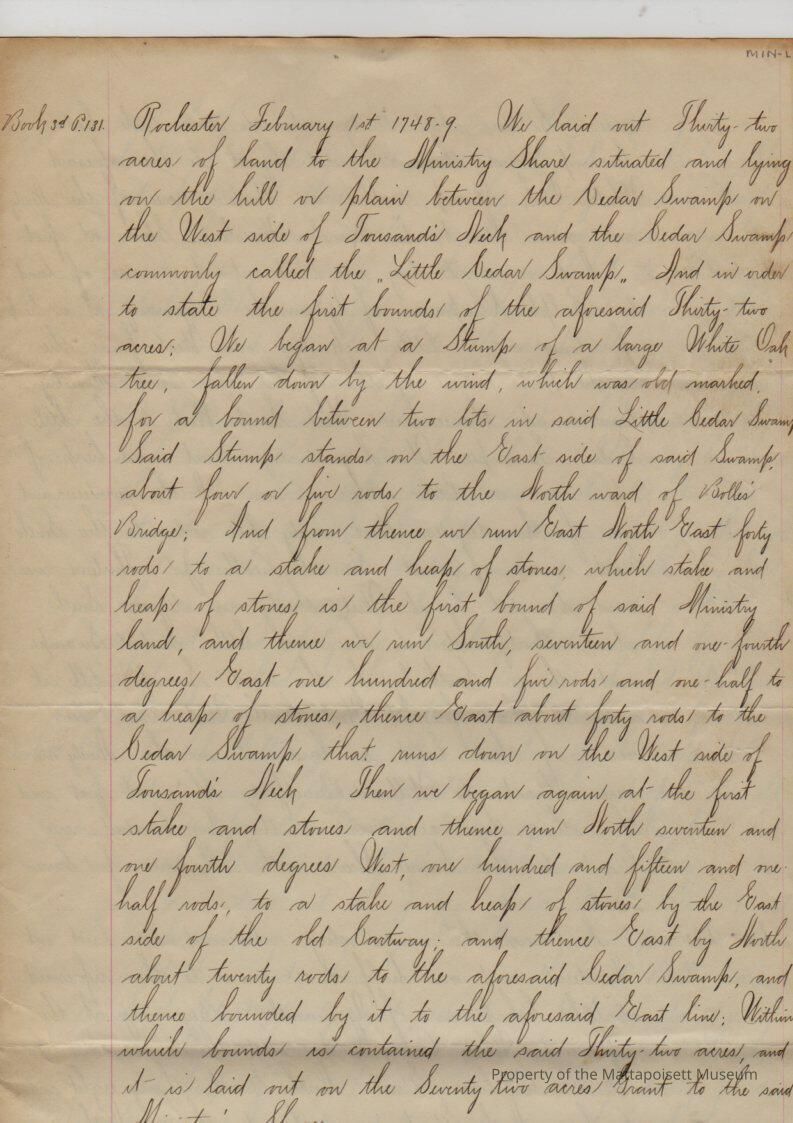 MIN-L
Book 3d P. 131.
Rochester February 1st 1748-9. We laid out Thirty-two
acres of land to the Ministry Share situated and lying
on the hill or plain between the Cedar Swamp on
the West side of Tousand's Neck and the Cedar Swamp
commonly called the „Little Cedar Swamp„ And in order
to state the first bounds of the aforesaid Thirty-two
acres; We began at a Stump of a large White Oak
tree, fallen down by the wind, which was old marked,
for a bound between two lots in said Little Cedar Swamp
Said Stump stands on the East side of said Swamp,
about four or five rods to the North ward of Bolles'
Bridge; And from thence we run East North East forty
rods to a stake and heap of stones, which stake and
heap of stones, is the first bound of said Ministry
land, and thence we run South, seventeen and one-fourth
degrees East one hundred and five rods and one-half to
a heap of stones, thence East about forty rods to the
Cedar Swamp that runs down on the West side of
Tousand's Neck Then we began again at the first
stake and stones and thence run North seventeen and
one fourth degrees West, one hundred and fifteen and one-
half rods, to a stake and heap of stones by the East
side of the old Cartway; and thence East by North
about twenty rods to the aforesaid Cedar Swamp, and
thence bounded by it to the aforesaid East line; Within
which bounds is contained the said Thirty-two acres, and
it is laid out on the Seventy two acres Grant to the said
Property of the Mattapoisett Museum